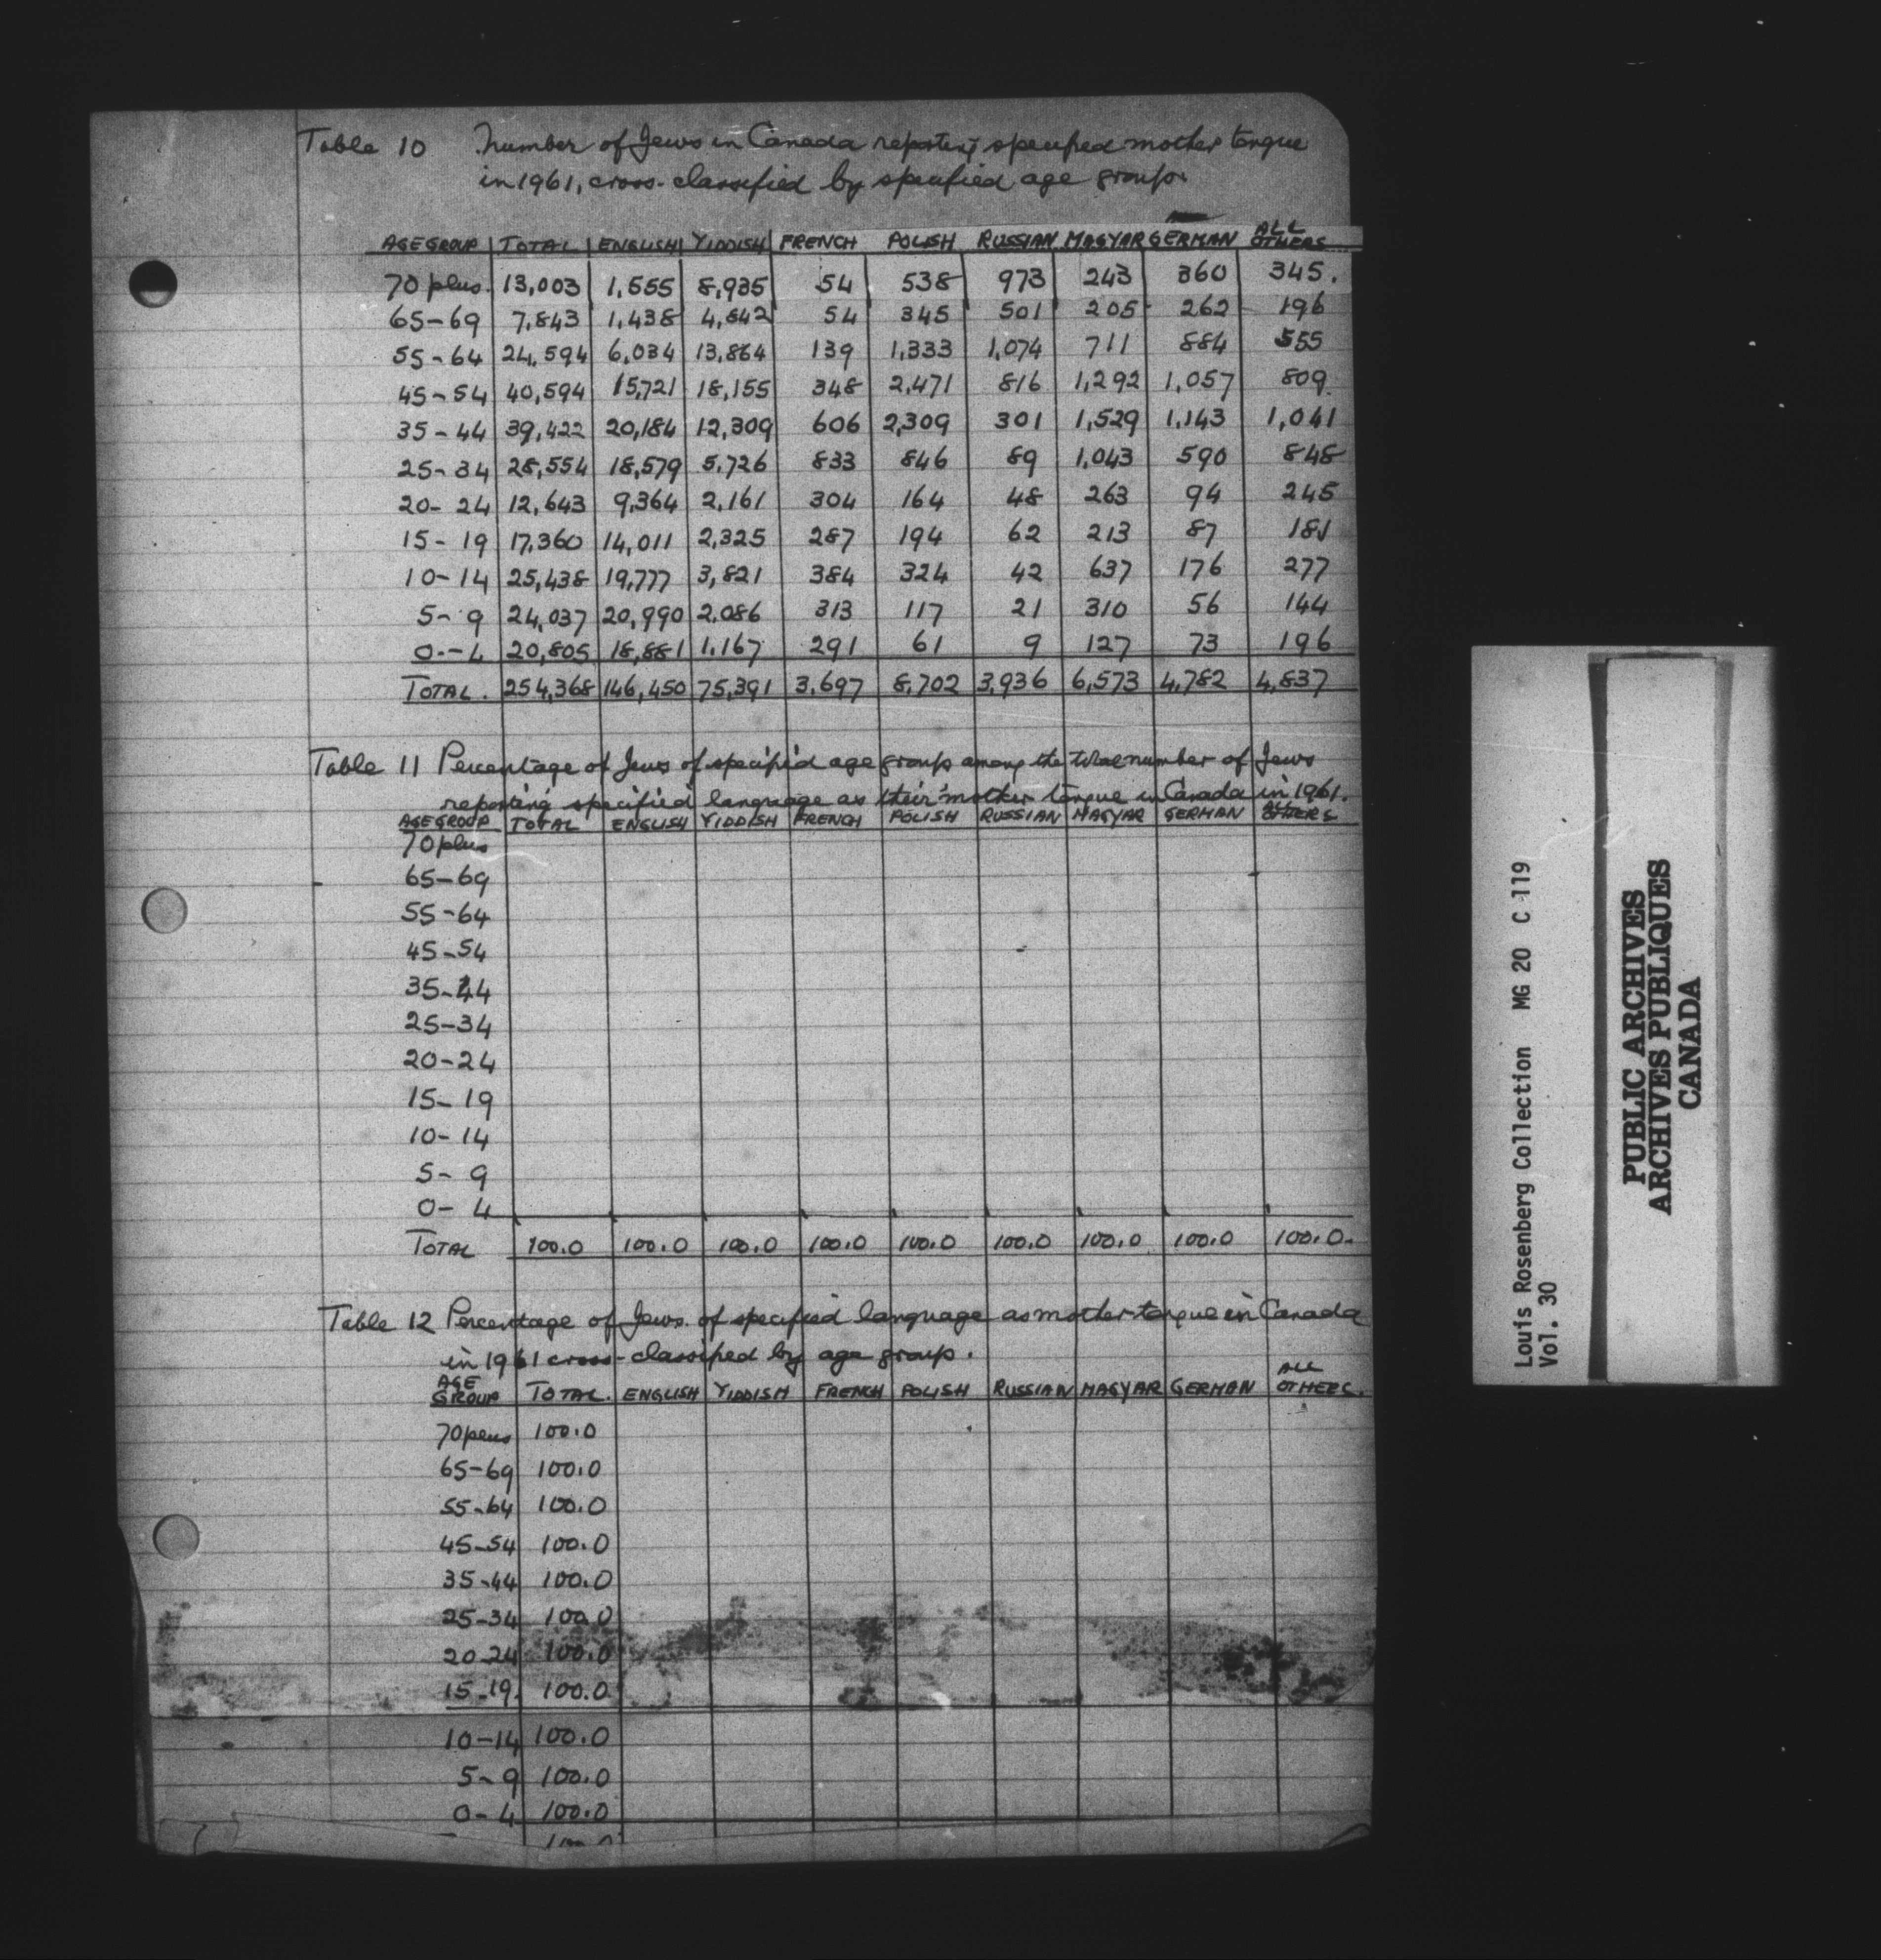 Table 10 Number of Jews in Canada reporting specified mother tongue
in 1961, cross-classified by specified age groups.
AGE GROUP TOTAL ENGLISH YIDDISH FRENCH POLISH RUSSIAN MAGYAR GERMAN ALL OTHERS
70 plus. 13,003 1,555 8,935 54 538 973 243 360 345.
65-69 7,843 1,438 4,842 54 345 501 205 262 196
55-64 24,594 6,034 13,864 139 1,333 1,074 711 884 555
45-54 40,594 15,721 18,155 348 2,471 816 1,292 1,057 809
35-44 39,422 20,184 12,309 606 2,309 301 1,529 1,143 1,041
25-34 28,554 18,579 5,726 833 846 89 1,043 590 848
20-24 12,643 9,364 2,161 304 164 48 263 94 245
15-19 17,360 14,011 2,325 287 194 62 213 87 181
10-14 25,438 19,777 3,821 384 324 42 637 176 277
5-9 24,037 20,990 2,086 313 117 21 310 56 144
0-4 20,805 18,881 1,167 291 61 9 127 73 196
TOTAL. 254,368 146,450 75,391 3,697 8,702 3,936 6,573 4,782 4,837
Table 11 Percentage of Jews of specified age groups among the total number of Jews
reporting specified language as their mother tongue in Canada in 1961.
AGE GROUP TOTAL ENGLISH YIDDISH FRENCH POLISH RUSSIAN MAGYAR GERMAN ALL OTHERS
70 plus
65-69
55-64
45-54
35-44
25-34
20-24
15-19
10-14
5-9
0-4
TOTAL 100.0 100.0 100.0 100.0 100.0 100.0 100.0 100.0 100.0.
Table 12 Percentage of Jews of specified language as mother tongue in Canada
in 1961 cross-classified by age group.
AGE GROUP TOTAL. ENGLISH YIDDISH FRENCH POLISH RUSSIAN MAGYAR GERMAN ALL OTHERS.
70 plus 100.0
65-69 100.0
55-64 100.0
45-54 100.0
35-44 100.0
25-34 100.0
20-24 100.0
15-19. 100.0
10-14 100.0
5-9 100.0
0-4 100.0
100.0
Louis Rosenberg Collection MG 20 C 119
Vol. 30
PUBLIC ARCHIVES
ARCHIVES PUBLIQUES
CANADA